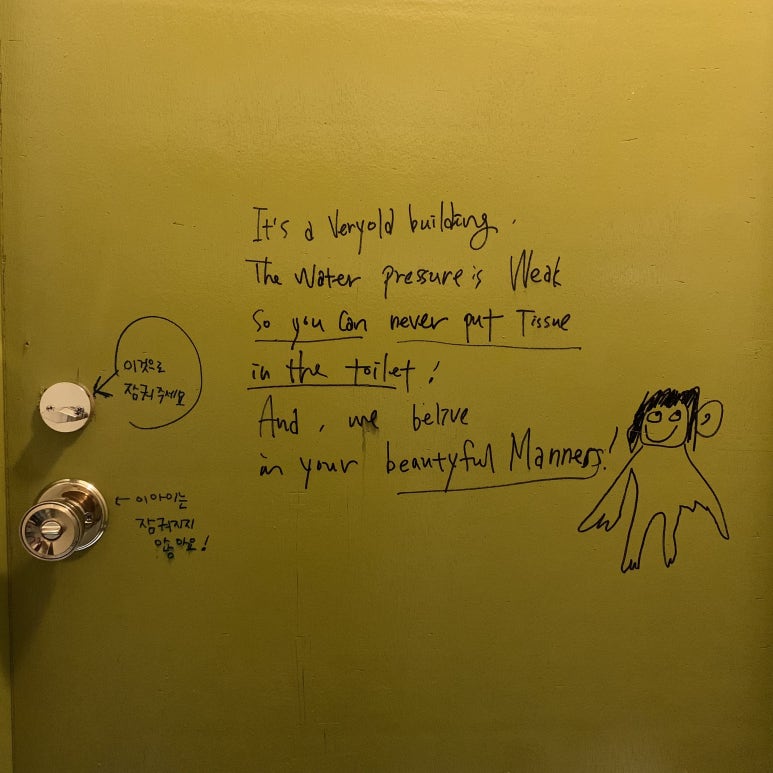 It's a Very old building.
The Water pressure is Weak
So you Can never put Tissue
in the toilet!
And, we belive
in your beautyful Manners!
이것으로
잠궈주세요
← 이아이는
잠궈지지
않아요!